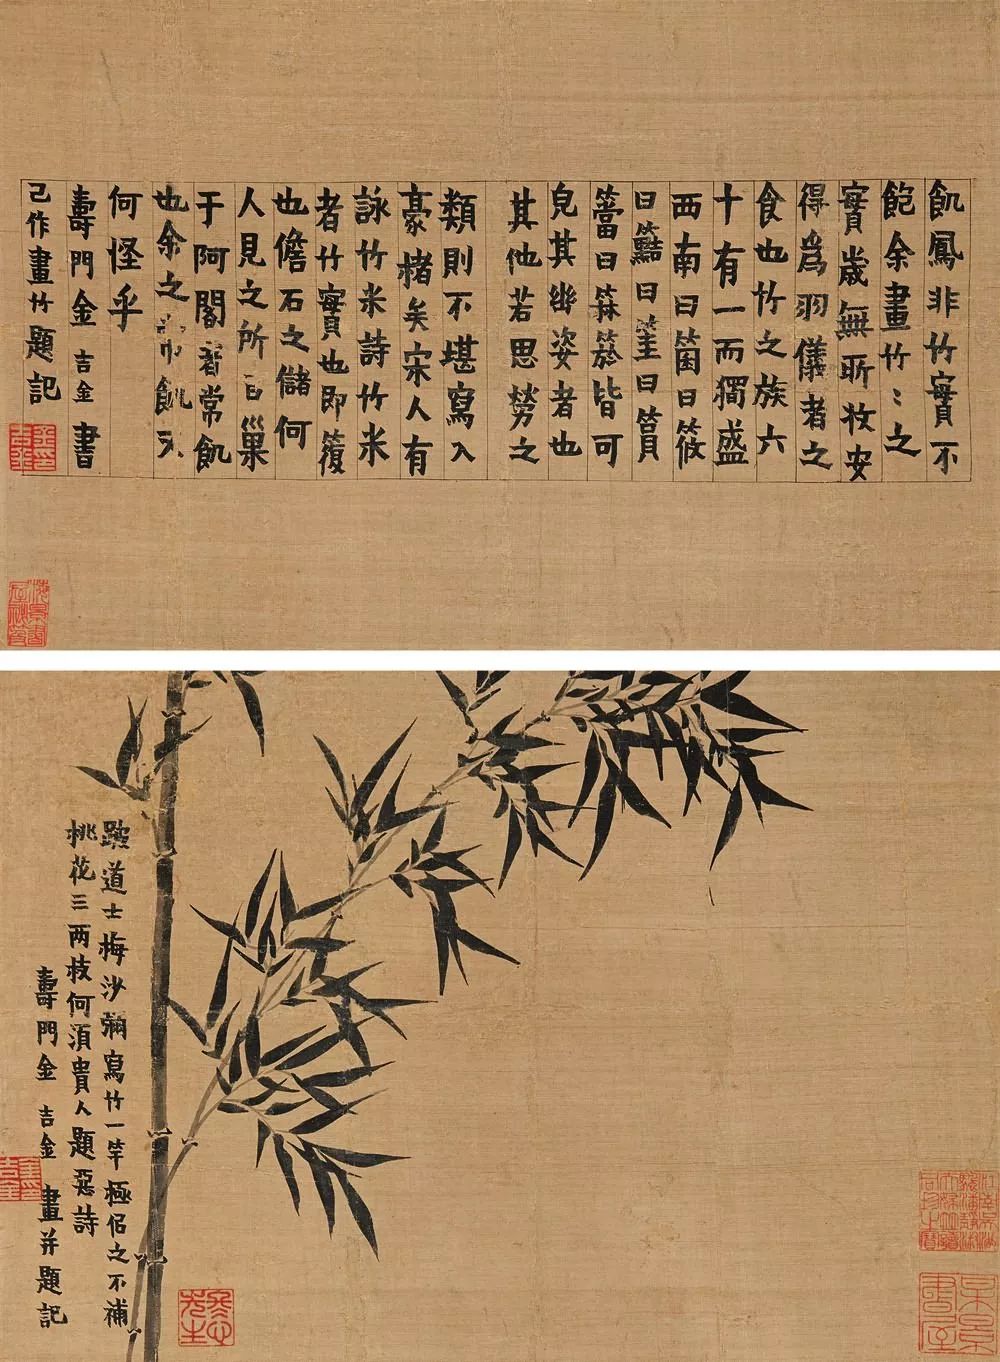 飢鳳非竹實不
飽余畫竹〻之
實歲無所收安
得爲羽儀者之
食也竹之族六
十有一而獨盛
西南曰箘曰筱
曰曰筀曰篔
簹曰箖箊皆可
皃其幽姿者也
其他若思勞之
類則不堪寫入
豪楮矣宋人有
詠竹米詩竹米
者竹實也即復
也儋石之儲何
人見之所巢
于阿閣者常飢
也余之常飢又
何怪乎
壽門金吉金書
己作畫竹題記
跛道士梅沙彌寫竹一竿極侶之不補
桃花三兩枝何須貴人題惡詩
壽門金吉金畫并題記
冬心先生